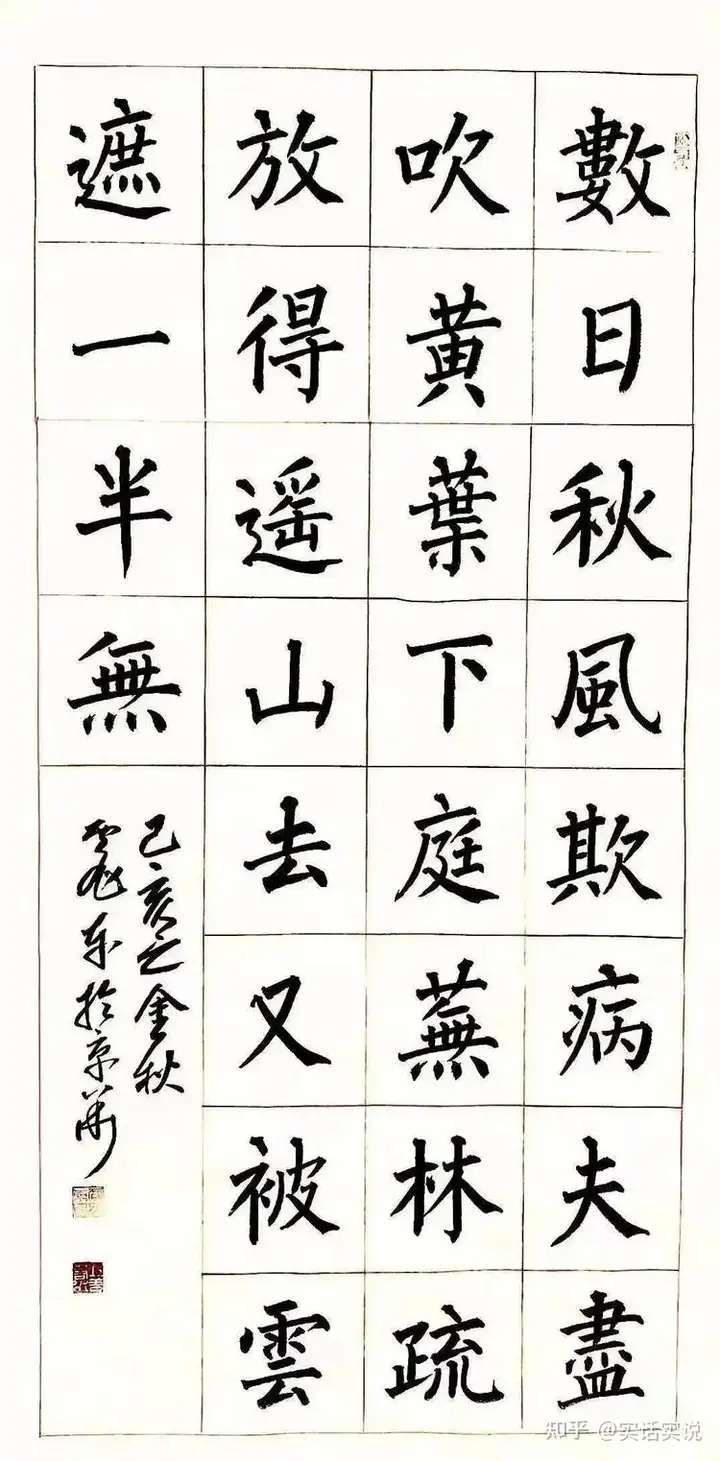 數日秋風欺病夫盡
吹黃葉下庭蕪林疏
放得遙山去又被雲
遮一半無
己亥之金秋
東於京華
知乎 @实话实说